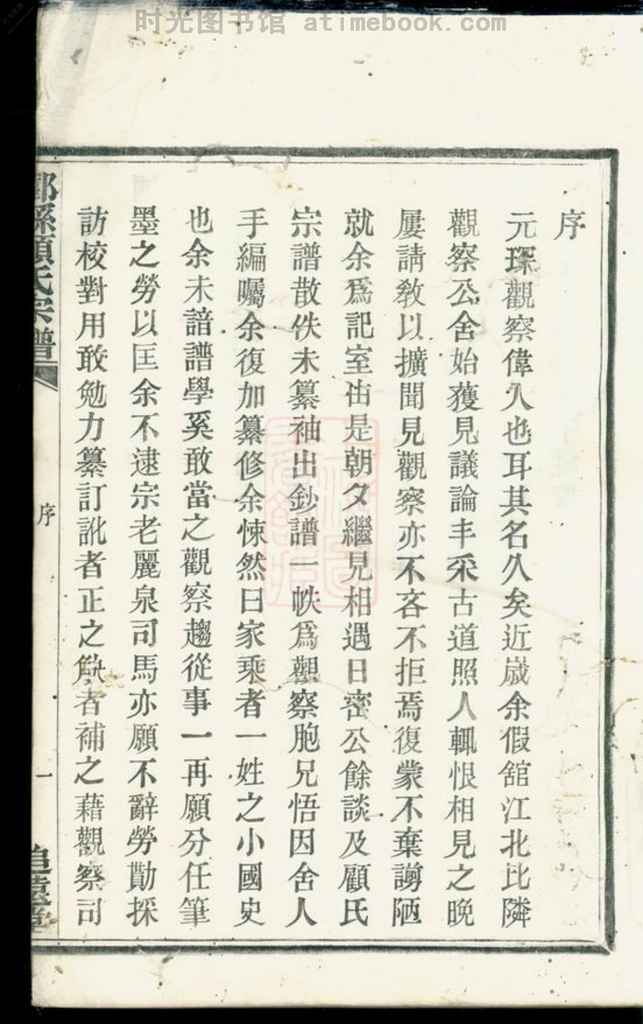 时光图书馆 atimebook.com
序
元琛觀察偉人也耳其名久矣近歲余假舘江北比隣
觀察公舍始獲見議論丰采古道照人輒恨相見之晚
屢請教以擴聞見觀察亦不吝不拒焉復蒙不棄謭陋
就余爲記室由是朝夕繼見相遇日密公餘談及顧氏
宗譜散佚未纂袖出鈔譜一帙爲觀察胞兄悟因舍人
手編囑余復加纂修余悚然曰家乘者一姓之小國史
也余未諳譜學奚敢當之觀察趨從事一再願分任筆
墨之勞以匡余不逮宗老麗泉司馬亦願不辭勞勩採
訪校對用敢勉力纂訂訛者正之缺者補之藉觀察司
縣顧氏宗譜
序
一